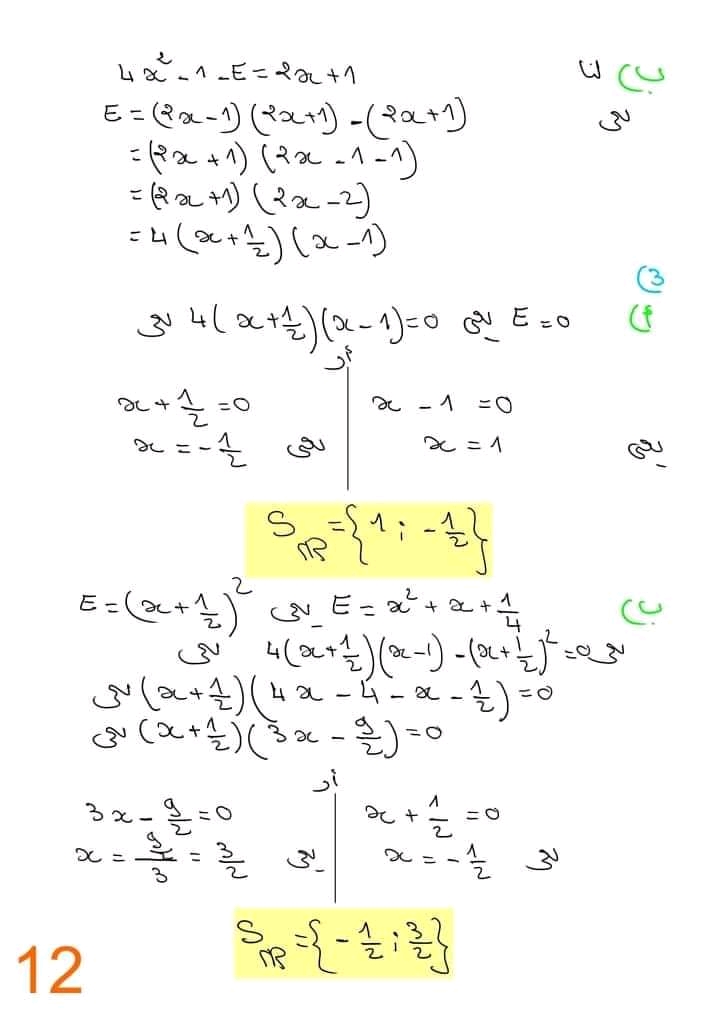 ب) لنا 4x² - 1 - E = 2x + 1
يعني E = (2x - 1)(2x + 1) - (2x + 1)
= (2x + 1)(2x - 1 - 1)
= (2x + 1)(2x - 2)
= 4(x + 1/2)(x - 1)
3)
أ) E = 0 يعني 4(x + 1/2)(x - 1) = 0 يعني
أو
x - 1 = 0 | x + 1/2 = 0
يعني x = 1 | يعني x = -1/2
S_ℝ = {1 ; -1/2}
ب) E = x² + x + 1/4 يعني E = (x + 1/2)²
يعني 4(x + 1/2)(x - 1) - (x + 1/2)² = 0 يعني
(x + 1/2)(4x - 4 - x - 1/2) = 0 يعني
(x + 1/2)(3x - 9/2) = 0 يعني
أو
x + 1/2 = 0 | 3x - 9/2 = 0
يعني x = -1/2 | يعني x = (9/2)/3 = 3/2
S_ℝ = {-1/2 ; 3/2}
12